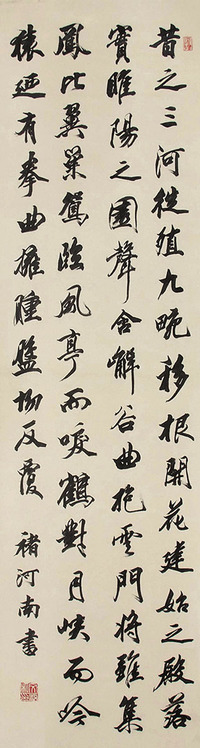 昔之三河徙殖九畹移根開花建始之殿落
實睢陽之園聲含嶰谷曲抱雲門將雛集
鳳比翼巢鴛臨風亭而唳鶴對月峽而吟
猿迺有拳曲擁腫盤坳反覆 褚河南書